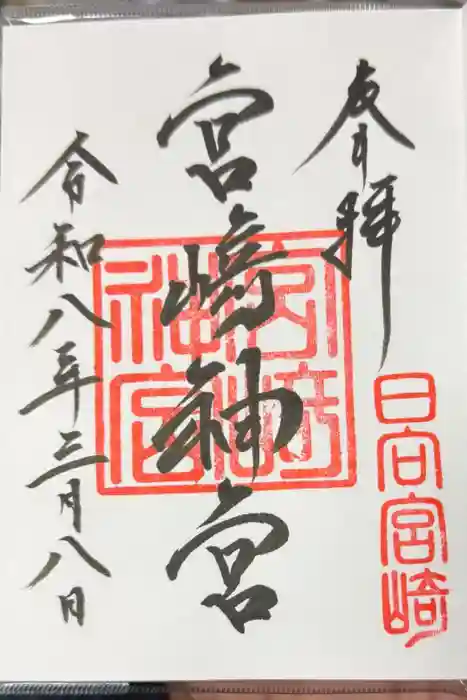 奉拝
日向宮崎
宮崎神宮
宮崎神宮
令和八年三月八日